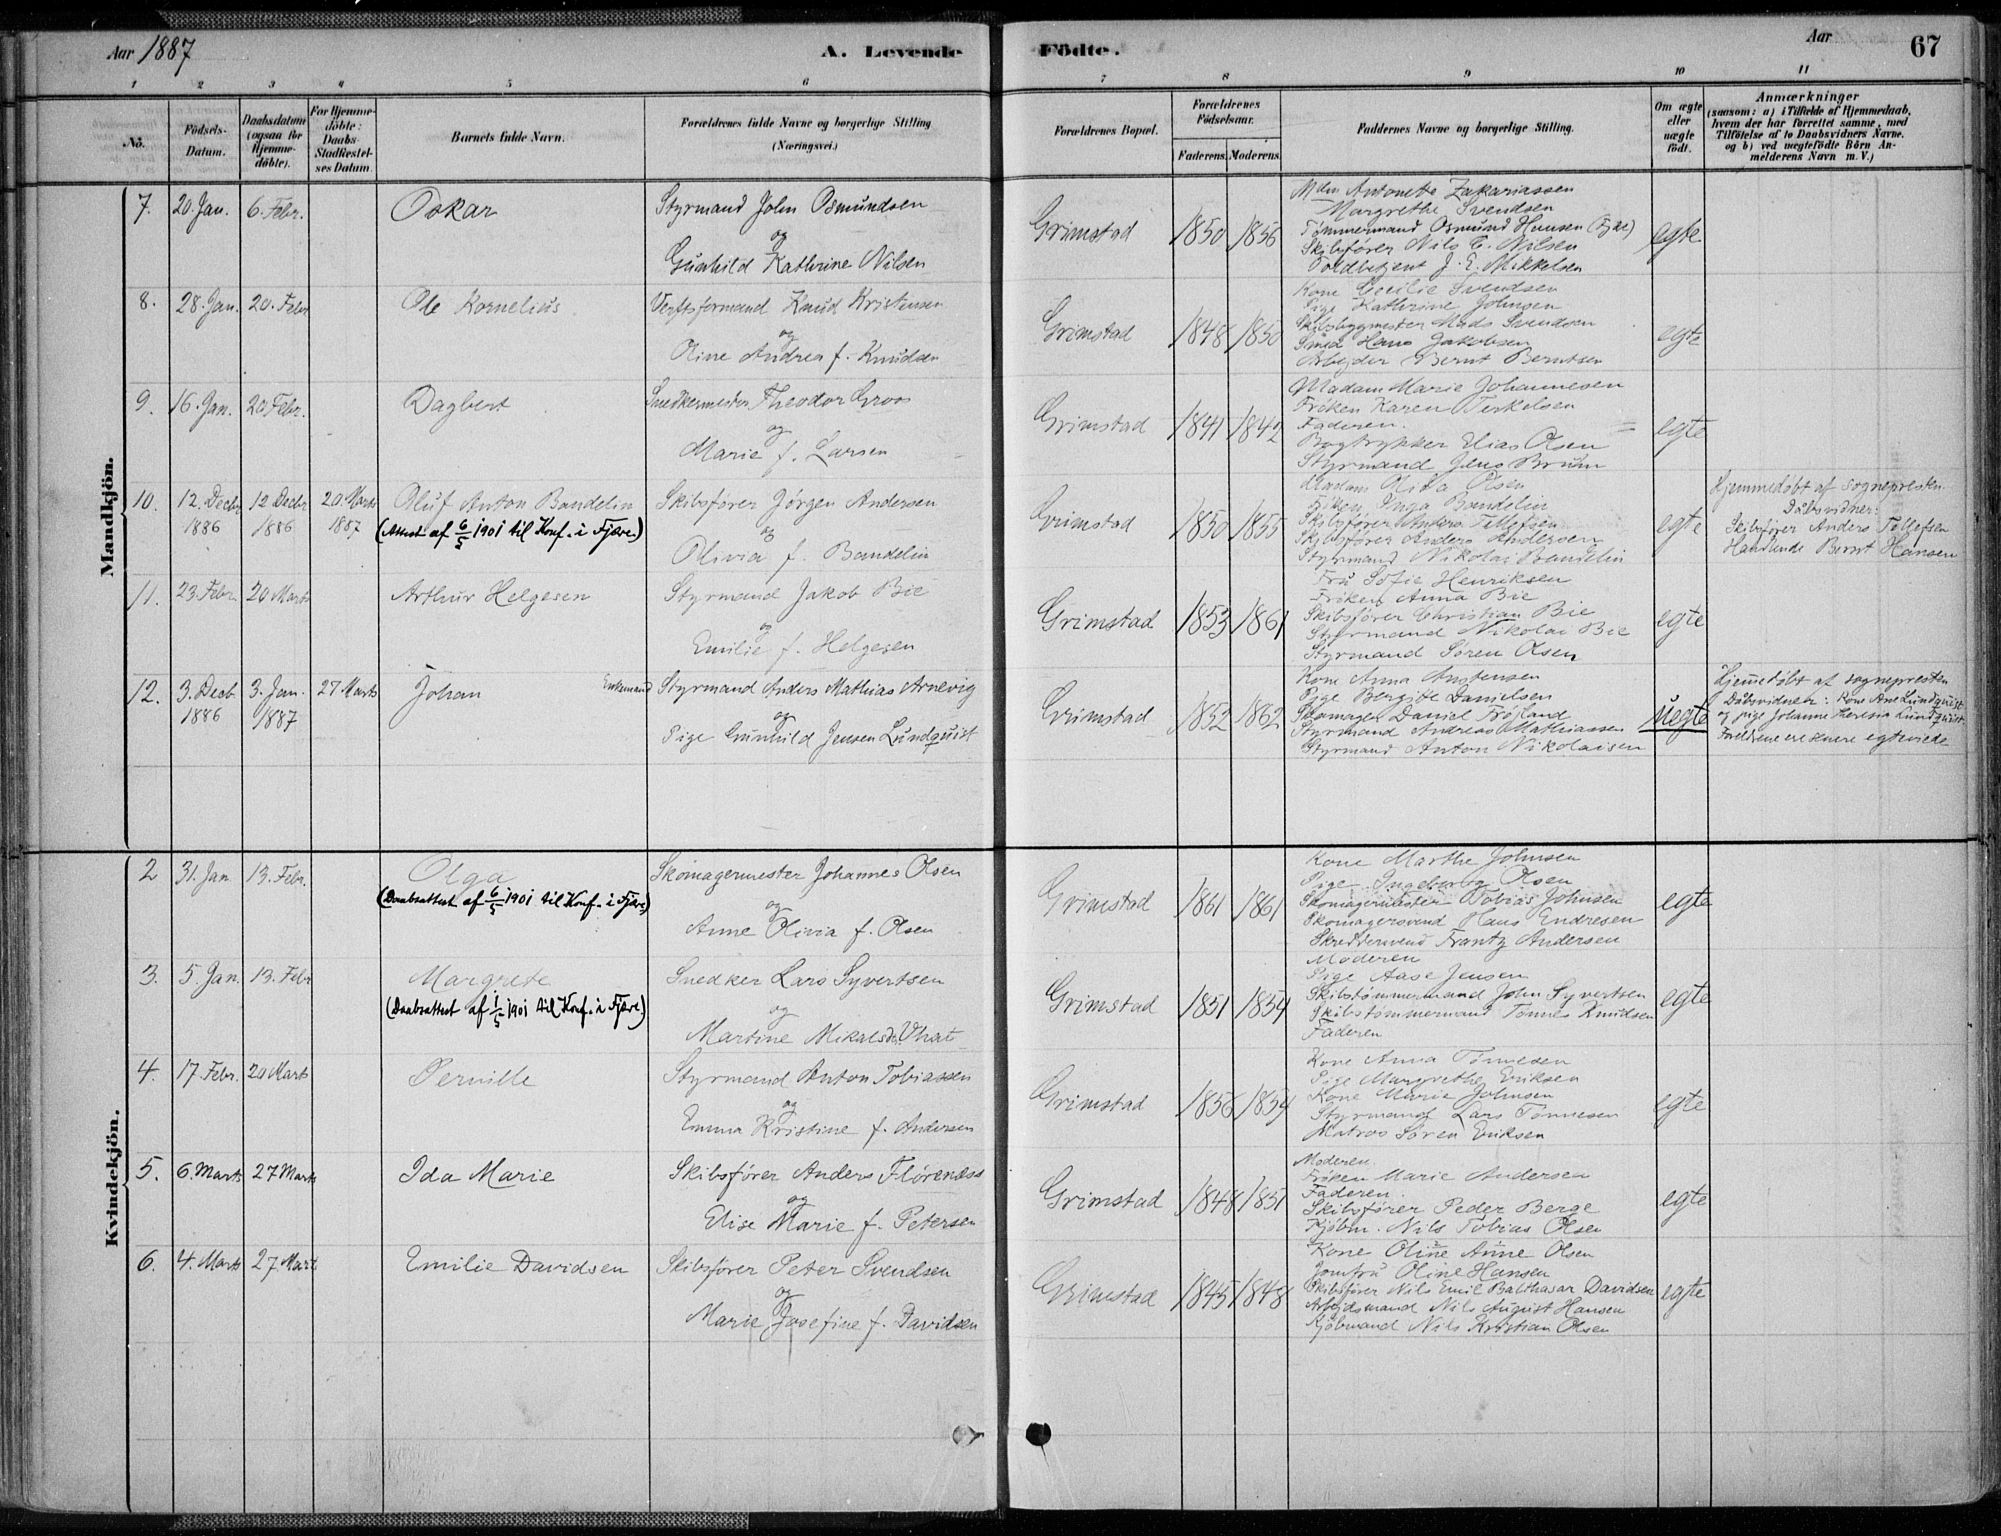 Aar 1887
A. Levende Födte.
Aar
67
1 2 3 4 5 6 7 8 9 10 11
No.
Födsels-Datum.
Daabsdatum (ogsaa for Hjemmedöbte).
For Hjemmedöbte: Daabs-Stadfæstelses Datum
Barnets fulde Navn.
Forældrenes fulde Navne og borgerlige Stilling (Næringsvei.)
Forældrenes Bopæl.
Forældrenes Födselsaar.
Faderens. Moderens.
Faddernes Navne og borgerlige Stilling.
Om ægte eller uægte født.
Anmærkninger
(saasom: a) i Tilfælde af Hjemmedaab, hvem der har forrettet samme, med Tilföielse af to Daabsvidners Navne. og b) ved uægtefödte Börn Anmelderens Navn m. V.)
Mandkjön.
7. 20. Jan. 6. Febr. Oskar
Styrmand John Osmundsen
og
Gunhild Kathrine Nilsen
Grimstad 1850 1856
Mdm Antonette Zakariassen
Margrethe Svendsen
Tømmermand Osmund Hansen (Fjære)
Skibsfører Nils C. Nilsen
Toldbetjent J. E. Mikkelsen
egte
8. 28. Jan. 20. Febr Ole Kornelius
Verftsformand Knud Kristensen
og
Oline Andrea f. Knudsen
Grimstad 1848 1850
Kone Cecilie Svendsen
Pige Kathrine Johnsen
Skibsbygmester Mads Svendsen
Smed Hans Jakobsen
Arbejder Bernt Berntsen
egte
9. 16. Jan. 20 Febr. Dagbert
Snedkermester Theodor Groos
og
Marie f. Larsen
Grimstad 1841 1842
Madam Marie Johannesen
Frøken Karen Terkelsen
Faderen.
Bogtrykker Elias Olsen
Styrmand Jens Bruun
egte
10. 12. Decbr 1886 12 Decbr 1886 20. Marts 1887 Oluf Anton Bandelin
(Attest af 6/5 1901 til Konf. i Fjære)
Skibsfører Jørgen Andersen
og
Olivia f. Bandelin
Grimstad 1850 1855
Madam Olida Olsen
Frøken Inga Bandelin
Skibsfører Anders Tellefsen
Skibsfører Anders Andersen
Styrmand Nikolai Bandelin
egte
Hjemmedøbt af sognepresten
Dåbsvidner:
Skibsfører Anders Tellefsen
Handlende Bernt Hansen
11. 23. Febr. 20 Marts Arthur Helgesen
Styrmand Jakob Bie
og
Emilie f. Helgesen
Grimstad 1853 1861
Fru Sofie Henriksen
Frøken Anna Bie
Skibsfører Christian Bie
Styrmand Nikolai Bie
Styrmand Søren Olsen
egte
12. 3. Decb 1886 3. Jan. 1887 27 Marts Johan
Enkemand Styrmand Anders Mathias Arnevig
og
Pige Gunhild Jensen Lundquist
Grimstad 1852 1862
Kone Anna Anstensen
Pige Bergitte Danielsen
Skomager Daniel Frøjland
Styrmand Andreas Mathiassen
Styrmand Anton Nikolaisen
uegte
Hjemmedøbt af sognepresten
Dåbsvidner: Kone Ane Lundquist
og pige Johanne Theresia Lundquist
Foreldrene ere senere egteviede
Kvindekjön.
2 31. Jan 13. Febr. Olga
(Daabsattest af 6/5 1901 til Konf. i Fjære)
Skomagermester Johannes Olsen
og
Anne Olivia f. Olsen
Grimstad 1861 1861
Kone Marthe Johnsen
Pige Ingeborg Olsen
Skomagermester Tobias Johnsen
Skomagersvend Hans Endresen
Skreddersvend Frantz Andersen
egte
3. 5. Jan. 13. Febr Margrete
(Daabsattest af 1/5 1901 til Konf. i Fjære)
Snedker Lars Syvertsen
og
Martine Mikalsdr.
Grimstad 1851 1854
Moderen
Pige Aase Jensen
Skibstømmermand John Syvertsen
Skibstømmermand Tønnes Knudsen
Faderen
egte
4. 17. Febr. 20 Marts Pernille
Styrmand Anton Tobiassen
og
Emma Kristine f. Andersen
Grimstad 1856 1854
Kone Anna Tønnesen
Pige Margrethe Eriksen
Kone Marie Johnsen
Styrmand Lars Tønnesen
Matros Søren Eriksen
egte
5. 6. Marts 27 Marts Ida Marie
Skibsfører Anders Florenæss
og
Elise Marie f. Petersen
Grimstad 1848 1851
Moderen.
Frøken Marie Andersen
Faderen.
Skibsfører Peder Berge
Kjøbm. Nils Tobias Olsen
egte
6. 4. Marts 27 Mart Emilie Davidsen
Skibsfører Peter Svendsen
og
Marie Josefine f. Davidsen
Grimstad 1845 1848
Kone Oline Anne Olsen
Jomfru Oline Hansen
Skibsfører Nils Emil Balthasar Davidsen
Arbejdsmand Nils August Hansen
Kjøbmand Nils Kristian Olsen
egte